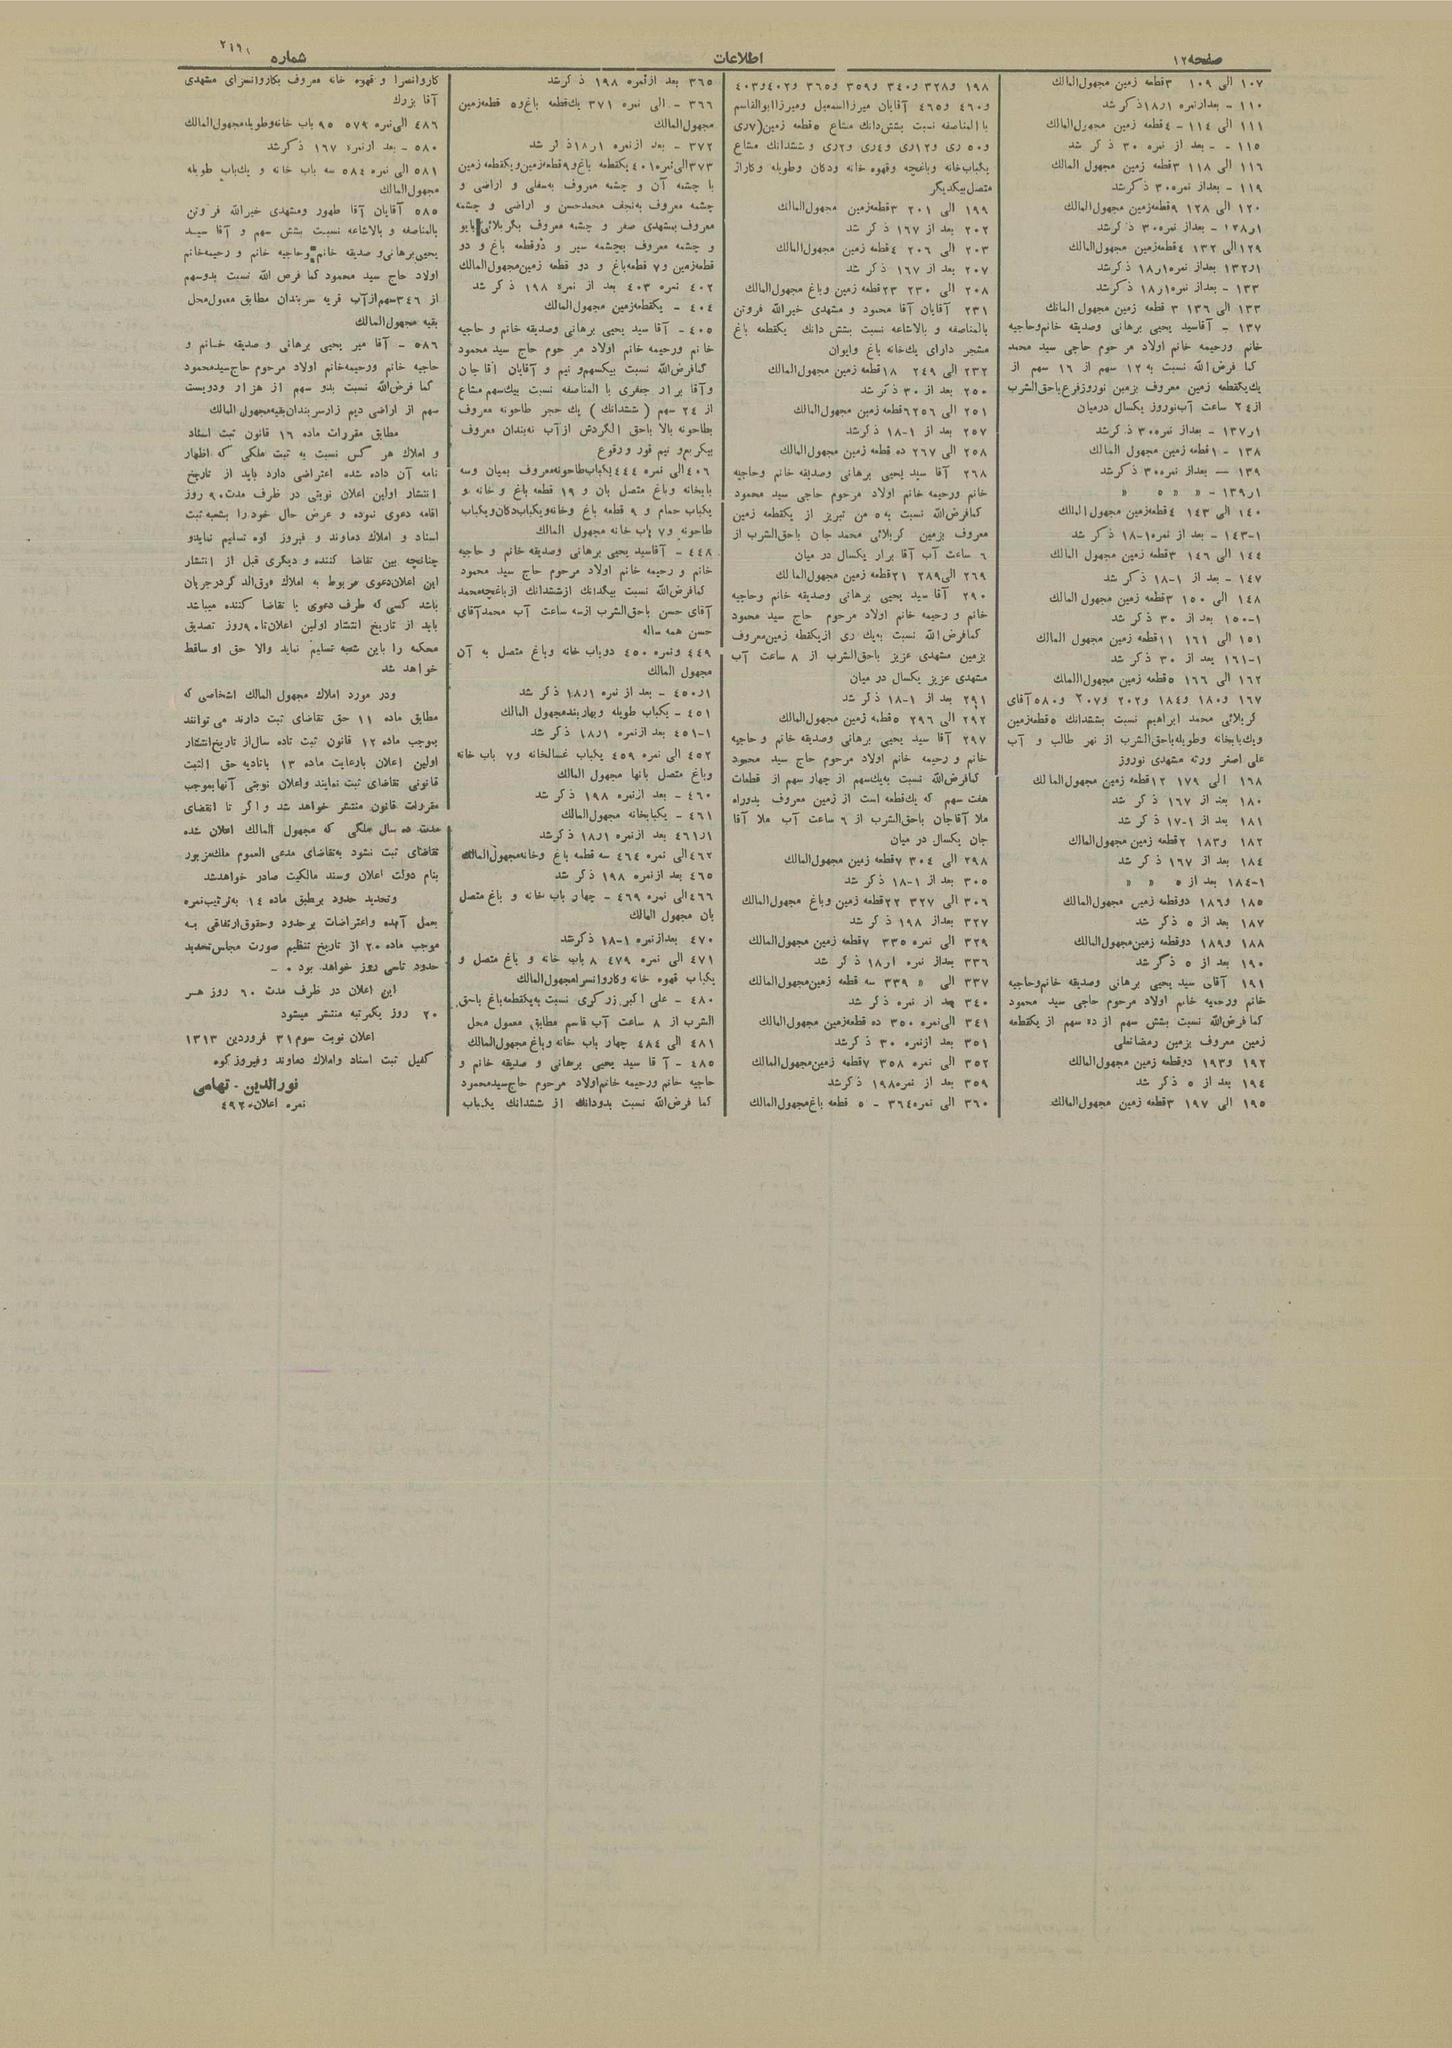 صفحه۱۲
اطلاعات
شماره
۱۰۷ الی ۱۰۹ ۳قطعه زمین مجهول‌المالك
۱۱۰ - بعدازنمره ۱ر۱۸ذکر شد
۱۱۱ الی ۱۱٤ - ٤قطعه زمین مجهول‌المالك
۱۱۵ - بعد از نمره ۳۰ ذکر شد
۱۱٦ الی ۱۱۸ ۳قطعه زمین مجهول المالك
۱۱۹ - بعداز نمره۳۰ ذکرشد
۱۲۰ الی ۱۲۸ ۹قطعه‌زمین مجهول‌المالك
۱ر۱۲۸ - بعداز نمره۳۰ ذکرشد
۱۲۹الی ۱۳۲ ٤قطعه‌زمین مجهول‌المالك
۱ر۱۳۲ بعداز نمره۱ر۱۸ ذکرشد
۱۳۳ - بعداز نمره۱ر۱۸ ذکرشد
۱۳۳ الی ۱۳٦ ۳ قطعه زمین مجهول المالك
۱۳۷ - آقاسید یحیی برهانی وصدیقه خانم‌وحاجیه
خانم ورحیمه خانم اولاد مرحوم حاجی سید محمد
کما فرض‌الله نسبت به ۱۲ سهم از ۱٦ سهم از
یك‌یکقطعه زمین معروف بزمین نوروزفرع‌باحق‌الشرب
از۲٤ ساعت آب‌نوروز یکسال درمیان
۱ر۱۳۷ - بعداز نمره۳۰ ذکرشد
۱۳۸ - ۱قطعه زمین مجهول المالك
۱۳۹ — بعداز نمره۳۰ ذکرشد
۱ر۱۳۹ - « « ۵ « «
۱٤۰ الی ۱٤۳ ٤قطعه‌زمین مجهول‌المالك
۱-۱٤۳ - بعد از نمره ۱-۱۸ ذکر شد
۱٤٤ الی ۱٤٦ ۳قطعه زمین مجهول المالك
۱٤۷ - بعد از ۱-۱۸ ذکر شد
۱٤۸ الی ۱۵۰ ۳قطعه زمین مجهول المالك
۱-۱۵۰ بعد از ۳۰ ذکر شد
۱۵۱ الی ۱٦۱ ۱۱قطعه زمین مجهول المالك
۱-۱٦۱ بعد از ۳۰ ذکر شد
۱٦۲ الی ۱٦٦ ۵قطعه زمین مجهول‌االملك
۱٦۷ و۱۸۰ و۱۸٤ و۲۰۲ و۲۰۷ و۵۸۰آقای
کربلائی محمد ابراهیم نسبت بششدانك ۵قطعه‌زمین
ویك‌بابخانه وطویله‌باحق‌الشرب از نهر طالب و آب
علی اصغر ورثه مشهدی نوروز
۱٦۸ الی ۱۷۹ ۱۲قطعه زمین مجهول‌المالك
۱۸۰ بعد از ۱٦۷ ذکر شد
۱۸۱ بعد از ۱-۱۷ ذکر شد
۱۸۲ و۱۸۳ ۲قطعه زمین مجهول‌المالك
۱۸٤ بعد از ۱٦۷ ذکر شد
۱-۱۸٤ بعد از ۵ « «
۱۸۵ و۱۸٦ دوقطعه زمین مجهول‌المالك
۱۸۷ بعد از ۵ ذکر شد
۱۸۸ و۱۸۹ دوقطعه زمین‌مجهول‌المالك
۱۹۰ بعد از ۵ ذکرشد
۱۹۱ آقای سید یحیی برهانی وصدیقه خانم‌وحاجیه
خانم ورحمیه خانم اولاد مرحوم حاجی سید محمود
کما فرض‌الله نسبت بشش سهم از ده سهم از یکقطعه
زمین معروف بزمین رمضانعلی
۱۹۲ و۱۹۳ دوقطعه زمین مجهول‌المالك
۱۹٤ بعد از ۵ ذکر شد
۱۹۵ الی ۱۹۷ ۳قطعه زمین مجهول‌المالك
۱۹۸ و۳۲۸ و۳٤۰ و۳۵۹ و۳٦۵ و٤۰۲ و٤۰۳
و٤٦۰ و٤٦۵ آقایان میرزااسمعیل ومیرزاابوالقاسم
باالمناصفه نسبت بشش‌دانك مشاع ۵قطعه زمین(۷ری
و۵۰ ری و۱۲ری و٤ری و۲ری و ششدانك مشاع
یکباب‌خانه وباغچه وقهوه خانه ودکان وطویله وکاراز
متصل‌بیکدیگر
۱۹۹ الی ۲۰۱ ۳قطعه‌زمین مجهول‌المالك
۲۰۲ بعد از ۱٦۷ ذکر شد
۲۰۳ الی ۲۰٦ ٤قطعه زمین مجهول‌المالك
۲۰۷ بعد از ۱٦۷ ذکر شد
۲۰۸ الی ۲۳۰ ۲۳قطعه زمین وباغ مجهول‌المالك
۲۳۱ آقایان آقا محمود و مشهدی خیرالله فروتن
بالمناصفه و بالاشاعه نسبت بشش دانك یکقطعه باغ
مشجر دارای یك‌خانه باغ وایوان
۲۳۲ الی ۲٤۹ ۱۸قطعه زمین مجهول‌المالك
۲۵۰ بعد از ۳۰ ذکر شد
۲۵۱ الی ۲۵٦ ٦قطعه زمین مجهول‌المالك
۲۵۷ بعد از ۱-۱۸ ذکرشد
۲۵۸ الی ۲٦۷ ده قطعه زمین مجهول‌المالك
۲٦۸ آقا سید یحیی برهانی وصدیقه خانم وحاجیه
خانم ورحیمه خانم اولاد مرحوم حاجی سید محمود
کمافرض‌الله نسبت به۵ من تبریز از یکقطعه زمین
معروف بزمین کربلائی محمد جان باحق‌الشرب از
٦ ساعت آب آقا برار یکسال در میان
۲٦۹ الی۲۸۹ ۲۱قطعه زمین مجهول‌المالك
۲۹۰ آقا سید یحیی برهانی وصدیقه خانم وحاجیه
خانم و رحیمه خانم اولاد مرحوم حاج سید محمود
کمافرض‌الله نسبت به‌یك ری ازیکقطه زمین‌معروف
بزمین مشهدی عزیز باحق‌الشرب از ۸ ساعت آب
مشهدی عزیز یکسال در میان
۲۹۱ بعد از ۱-۱۸ ذکر شد
۲۹۲ الی ۲۹٦ ۵قطعه زمین مجهول‌المالك
۲۹۷ آقا سید یحیی برهانی وصدیقه خانم وحاجیه
خانم و رحیمه خانم اولاد مرحوم حاج سید محمود
کمافرض‌الله نسبت به‌یك‌سهم از چهار سهم از قطعات
هفت سهم که یك‌قطعه است از زمین معروف بدوراه
ملا آقاجان باحق‌الشرب از ٦ ساعت آب ملا آقا
جان یکسال در میان
۲۹۸ الی ۳۰٤ ۷قطعه زمین مجهول‌المالك
۳۰۵ بعد از ۱-۱۸ ذکر شد
۳۰٦ الی ۳۲۷ ۲۲قطعه زمین وباغ مجهول‌المالك
۳۲۷ بعداز ۱۹۸ ذکر شد
۳۲۹ الی نمره ۳۳۵ ۷قطعه زمین‌مجهول‌المالك
۳۳٦ بعداز نمره ۱ر۱۸ ذکر شد
۳۳۷ الی « ۳۳۹ سه قطعه زمین‌مجهول‌المالك
۳٤۰ بعد از نمره ذکر شد
۳٤۱ الی‌نمره ۳۵۰ ده قطعه‌زمین مجهول‌المالك
۳۵۱ بعد ازنمره ۳۰ ذکرشد
۳۵۲ الی نمره ۳۵۸ ۷قطعه زمین‌مجهول‌المالك
۳۵۹ بعد از نمره۱۹۸ ذکرشد
۳٦۰ الی نمره۳٦٤ - ۵ قطعه باغ‌مجهول‌المالك
۳٦۵ بعد ازنمره ۱۹۸ ذکرشد
۳٦٦ - الی نمره ۳۷۱ یك‌قطعه باغ‌و۵ قطعه‌زمین
مجهول‌المالك
۳۷۲ - بعد ازنمره ۱ر۱۸ذکر شد
۳۷۳الی‌نمره۱ ٤۰یکقطعه باغ‌و۹قطعه‌زمین‌ویکقطعه‌زمین
با چشمه آن و چشمه معروف به‌سفلی و اراضی و
چشمه معروف به‌نجف محمدحسن و اراضی و چشمه
معروف بمشهدی صفر و چشمه معروف بکربلائی بابو
و چشمه معروف بچشمه سیر و دوقطعه باغ و دو
قطعه‌زمین و۷ قطعه‌باغ و دو قطعه زمین‌مجهول‌المالك
٤۰۲ نمره ٤۰۳ بعد از نمره ۱۹۸ ذکر شد
٤۰٤ - یکقطعه‌زمین مجهول‌المالك
٤۰۵ - آقا سید یحیی برهانی وصدیقه خانم و حاجیه
خانم ورحیمه خانم اولاد مرحوم حاج سید محمود
کمافرض‌الله نسبت بیکسهم‌و نیم و آقایان آقا جان
وآقا برار جعفری با المناصفه نسبت بیك‌سهم مشاع
از ۲٤ سهم (ششدانك) یك حجر طاحونه معروف
بطاحونه بالا باحق الگردش ازآب نه‌بندان معروف
٤۰٦الی نمره ٤٤٤یکباب‌طاحونه‌معروف بمیان وسه
بابخانه وباغ متصل بان و ۱۹ قطعه باغ و خانه و
یکباب حمام و ۹ قطعه باغ وخانه‌ویکباب‌دکان‌ویکباب
طاحونه و۷ باب خانه مجهول المالك
٤٤۸ - آقاسید یحیی برهانی وصدیقه خانم و حاجیه
خانم و رحیمه خانم اولاد مرحوم حاج سید محمود
کمافرض‌الله نسبت بیکدانك ازششدانك ازباغچه‌محمد
آقای حسن باحق‌الشرب ازسه ساعت آب محمدآقای
حسن همه ساله
٤٤۹ ونمره ٤۵۰ دوباب خانه وباغ متصل به آن
مجهول المالك
۱ر٤۵۰ - بعد از نمره ۱ر۱۸ ذکر شد
٤۵۱ - یکباب طویله وبهاربندمجهول المالك
۱-٤۵۱ بعد ازنمره ۱ر۱۸ ذکر شد
٤۵۲ الی نمره ٤۵۹ یکباب غسالخانه و۷ باب خانه
وباغ متصل بانها مجهول المالك
٤٦۰ - بعد ازنمره ۱۹۸ ذکر شد
٤٦۱ - یکبابخانه مجهول‌المالك
۱ر٤٦۱ بعد ازنمره ۱ر۱۸ ذکرشد
٤٦۲الی نمره ٤٦٤ سه قطعه باغ وخانه‌مجهول‌المالك
٤٦۵ بعد ازنمره ۱۹۸ ذکر شد
٤٦٦الی نمره ٤٦۹ - چهار باب خانه و باغ متصل
بان مجهول المالك
٤۷۰ بعدازنمره ۱-۱۸ ذکرشد
٤۷۱ الی نمره ٤۷۹ ۸ باب خانه و باغ متصل و
یکباب قهوه خانه وکاروانسرامجهول‌المالك
٤۸۰ - علی اکبر زرکری نسبت به‌یکقطعه‌باغ باحق
الشرب از ۸ ساعت آب قاسم مطابق معمول محل
٤۸۱ الی ٤۸٤ چهار باب خانه وباغ مجهول‌المالك
٤۸۵ - آقا سید یحیی برهانی و صدیقه خانم و
حاجیه خانم ورحیمه خانم‌اولاد مرحوم حاج‌سیدمحمود
کما فرض‌الله نسبت بدودانك از ششدانك یکباب
کاروانسرا و قهوه خانه معروف بکاروانسرای مشهدی
آقا بزرك
٤۸٦ الی‌نمره ۵۷۹ ۹۵ باب خانه‌وطویله‌مجهول‌المالك
۵۸۰ - بعد ازنمره ۱٦۷ ذکرشد
۵۸۱ الی نمره ۵۸٤ سه باب خانه و یك‌باب طویله
مجهول‌المالك
۵۸۵ آقایان آقا طهور ومشهدی خیرالله فروتن
بالمناصفه و بالاشاعه نسبت بشش سهم و آقا سید
یحیی‌برهانی‌و صدیقه خانم وحاجیه خانم و رحیمه‌خانم
اولاد حاج سید محمود کما فرض الله نسبت بدوسهم
از ۳٤٦سهم‌ازآب قریه سربندان مطابق معمول‌محل
بقیه مجهول‌المالك
۵۸٦ - آقا میر یحیی برهانی و صدیقه خانم و
حاجیه خانم ورحیمه‌خانم اولاد مرحوم حاج‌سیدمحمود
کما فرض‌الله نسبت بدو سهم از هزار ودویست
سهم از اراضی دیم زارسربندان‌بقیه‌مجهول المالك
مطابق مقررات ماده ۱٦ قانون ثبت اسناد
و املاك هر کس نسبت به ثبت ملکی که اظهار
نامه آن داده شده اعتراضی دارد باید از تاریخ
انتشار اولین اعلان نوبتی در ظرف مدت۹۰ روز
اقامه دعوی نموده و عرض حال خودرا بشعبه‌ثبت
اسناد و املاك دماوند و فیروزکوه تسلیم نمایدو
چنانچه بین تقاضا کننده و دیگری قبل از انتشار
این اعلان‌دعوی مربوط به املاك فوق‌الذکردرجریان
باشد کسی که طرف دعوی با تقاضا کننده میباشد
باید از تاریخ انتشار اولین اعلان‌تا۹۰روز تصدیق
محکمه را باین شعبه تسلیم نماید والا حق او ساقط
خواهد شد
ودر مورد املاك مجهول المالك اشخاصی که
مطابق ماده ۱۱ حق تقاضای ثبت دارند می‌توانند
بموجب ماده ۱۲ قانون ثبت تاده سال‌از تاریخ‌انتشار
اولین اعلان بارعایت ماده ۱۳ باتادیه حق الثبت
قانونی تقاضای ثبت نمایند واعلان نوبتی آنهابموجب
مقررات قانون منتشر خواهد شد واگر تا انقضای
مدت ده سال ملکی که مجهول المالك اعلان شده
تقاضای ثبت نشود به‌تقاضای مدعی العموم ملك‌مزبور
بنام دولت اعلان وسند مالکیت صادر خواهدشد
وتحدید حدود برطبق ماده ۱٤ به‌ترتیب‌نمره
بعمل آمده واعتراضات برحدود وحقوق‌ارتفاقی به
موجب ماده۲۰ از تاریخ تنظیم صورت مجلس‌تحدید
حدود تاسی روز خواهد بود ۰ -
این اعلان در ظرف مدت ٦۰ روز هر
۲۰ روز یکمرتبه منتشر میشود
اعلان نوبت سوم ۳۱ فروردین ۱۳۱۳
کفیل ثبت اسناد واملاك دماوند وفیروزکوه
نورالدین - تهامی
نمره اعلان ٤۹۲۰